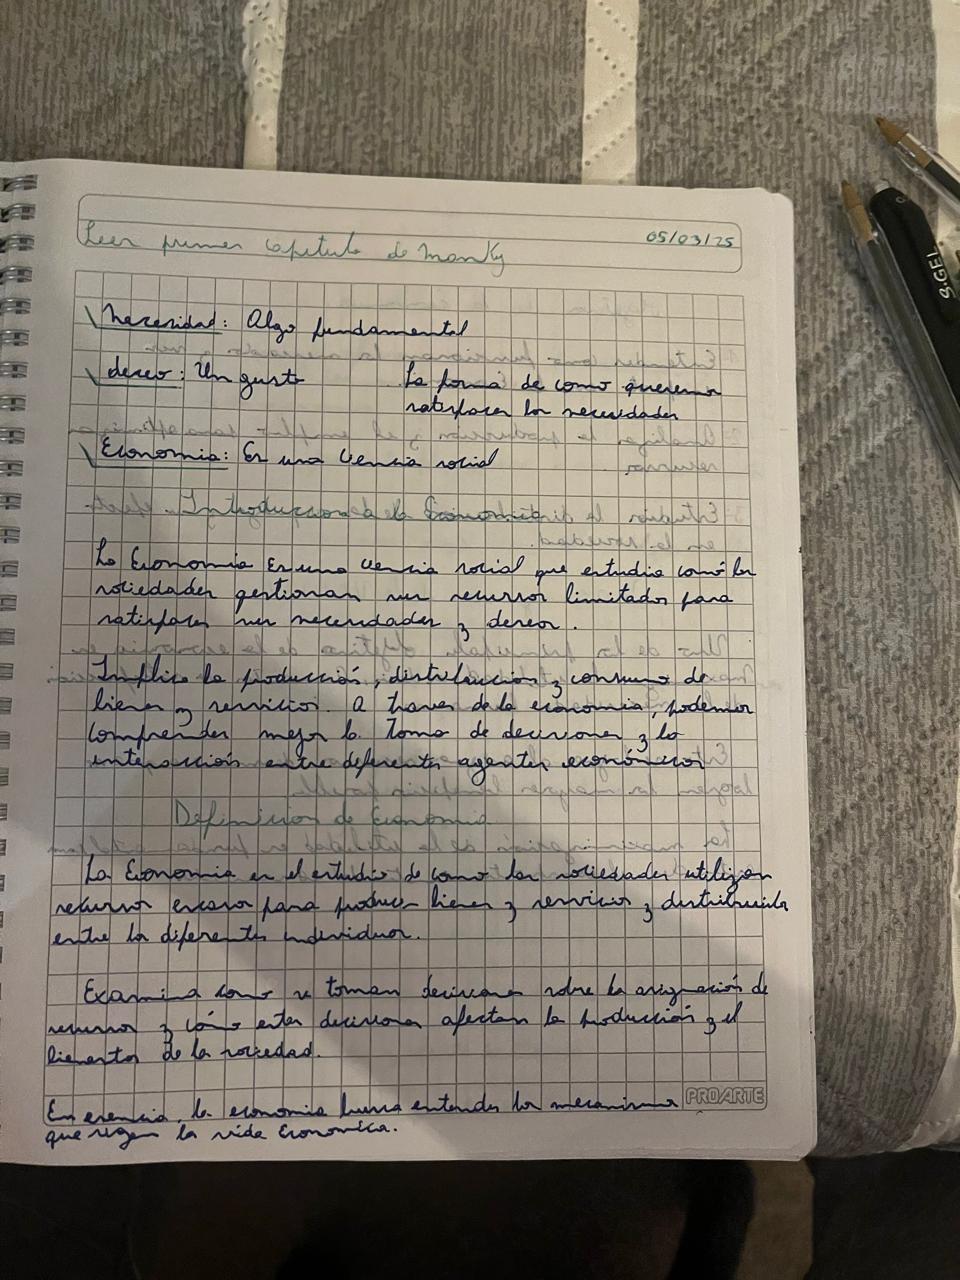 Leer primer capitulo de Manky
05/03/25
Necesidad: Algo fundamental
deseo: Un gusto
La forma de como queremos
satisfacer las necesidades
Economia: Es una Ciencia social
Introduccion a la Economia
La Economia Es una ciencia social que estudia como las
sociedades gestionan sus recursos limitados para
satisfacer sus necesidades y deseos.
Implica la producción, distribucion y consumo de
bienes y servicios. a traves de la economia, podemos
comprender mejor la toma de decisiones y la
interacción entre diferentes agentes económicos
Definicion de Economia
La Economia es el estudio de como las sociedades utilizan
recursos escasos para producir bienes y servicios y distribuirlos
entre los diferentes individuos.
Examina como se toman decisiones sobre la asignación de
recursos y cómo estas decisiones afectan la producción y el
bienestar de la sociedad.
En esencia, la economia busca entender los mecanismos
que rigen la vida Economica.
PROARTE
S.GEL